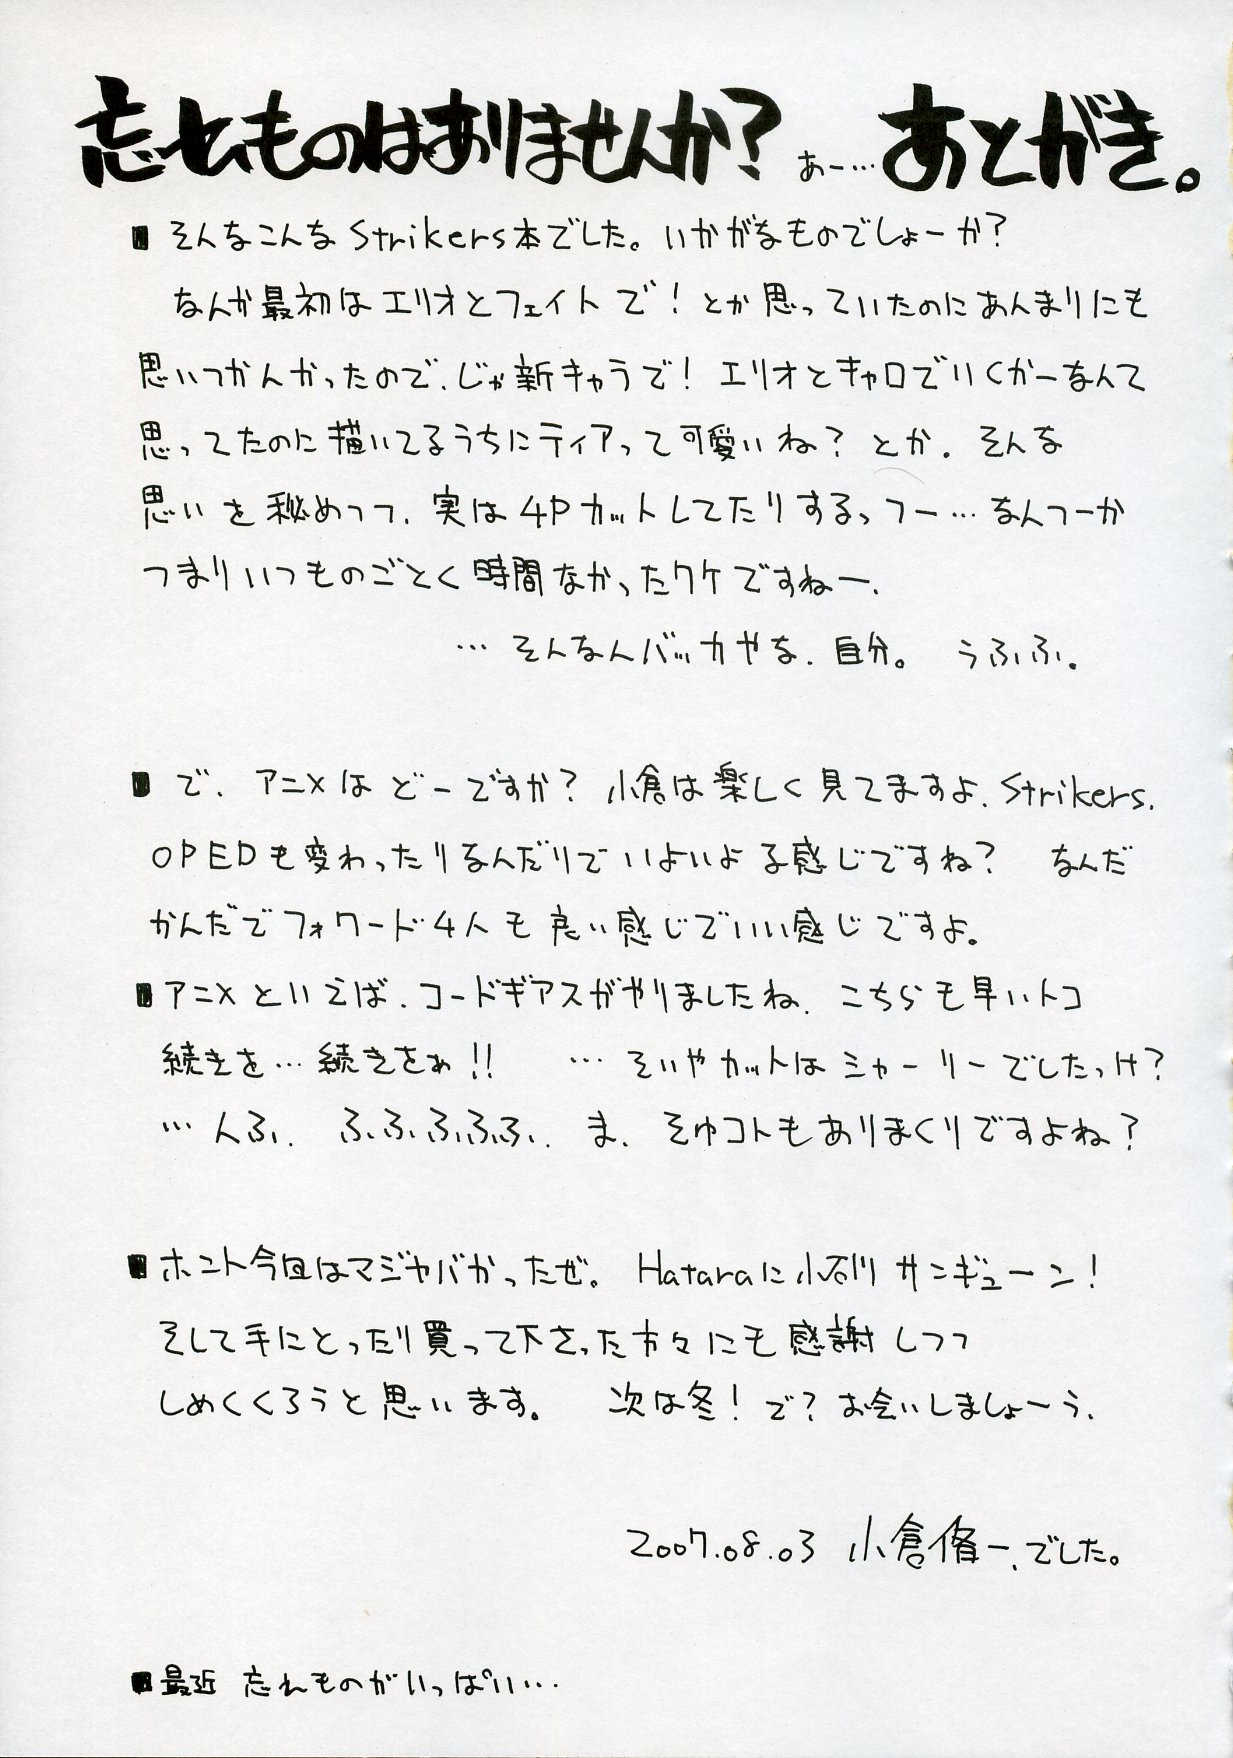 忘れものはありませんか? あー… あとがき。
■ そんなこんなStrikers本でした。いかがなものでしょーか?
なんか最初はエリオとフェイトで!とか思っていたのにあんまりにも
思いつかんかったので、じゃ新キャラで! エリオとキャロでいくかーなんて
思ってたのに描いてるうちにティアって可愛いね? とか、そんな
思いを秘めつつ、実は4Pカットしてたりするっつー…なんつーか
つまりいつものごとく時間なかったワケですねー、
… そんなんバッカやな、自分。 うふふ。
■ で、アニメはどーですか? 小倉は楽しく見てますよ、Strikers.
OPEDも変わったりなんだりでいよいよな感じですね? なんだ
かんだでフォワード4人も良い感じでいい感じですよ。
■ アニメといえば、コードギアスがやりましたね、こちらも早いトコ
続きを…続きをぉ!! … そいやカットはシャーリーでしたっけ?
… んふ、ふふふふふ、ま、そゆコトもありまくりですよね?
■ ホント今回はマジヤバかったぜ。 Hataraに小石川 サンギューン!
そして手にとったり買って下さった方々にも感謝しつつ
しめくくろうと思います。 次は冬!で? お会いしましょーう、
2007.08.03 小倉脩一、でした。
■ 最近 忘れものがいっぱい…